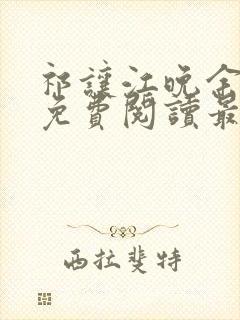 祁讓江晚余
免費閱讀最
西拉斐特